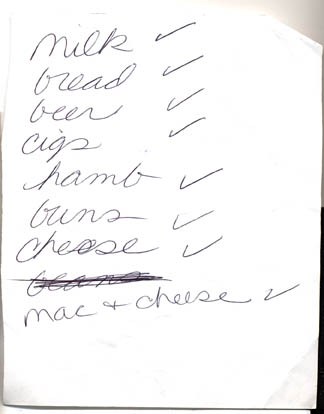 milk ✓
bread ✓
beer ✓
cigs ✓
hamb ✓
buns ✓
cheese ✓
beans
mac + cheese ✓